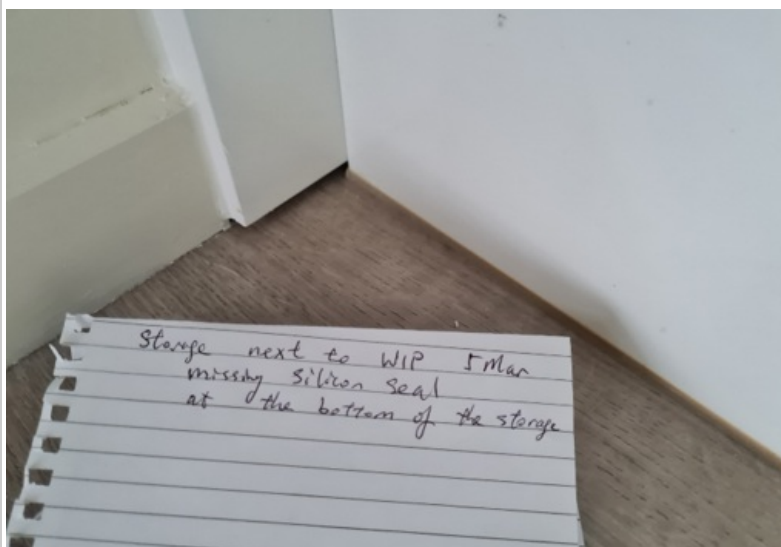 Storage next to WIP 5 Mar
missing silicon seal
at the bottom of the storage